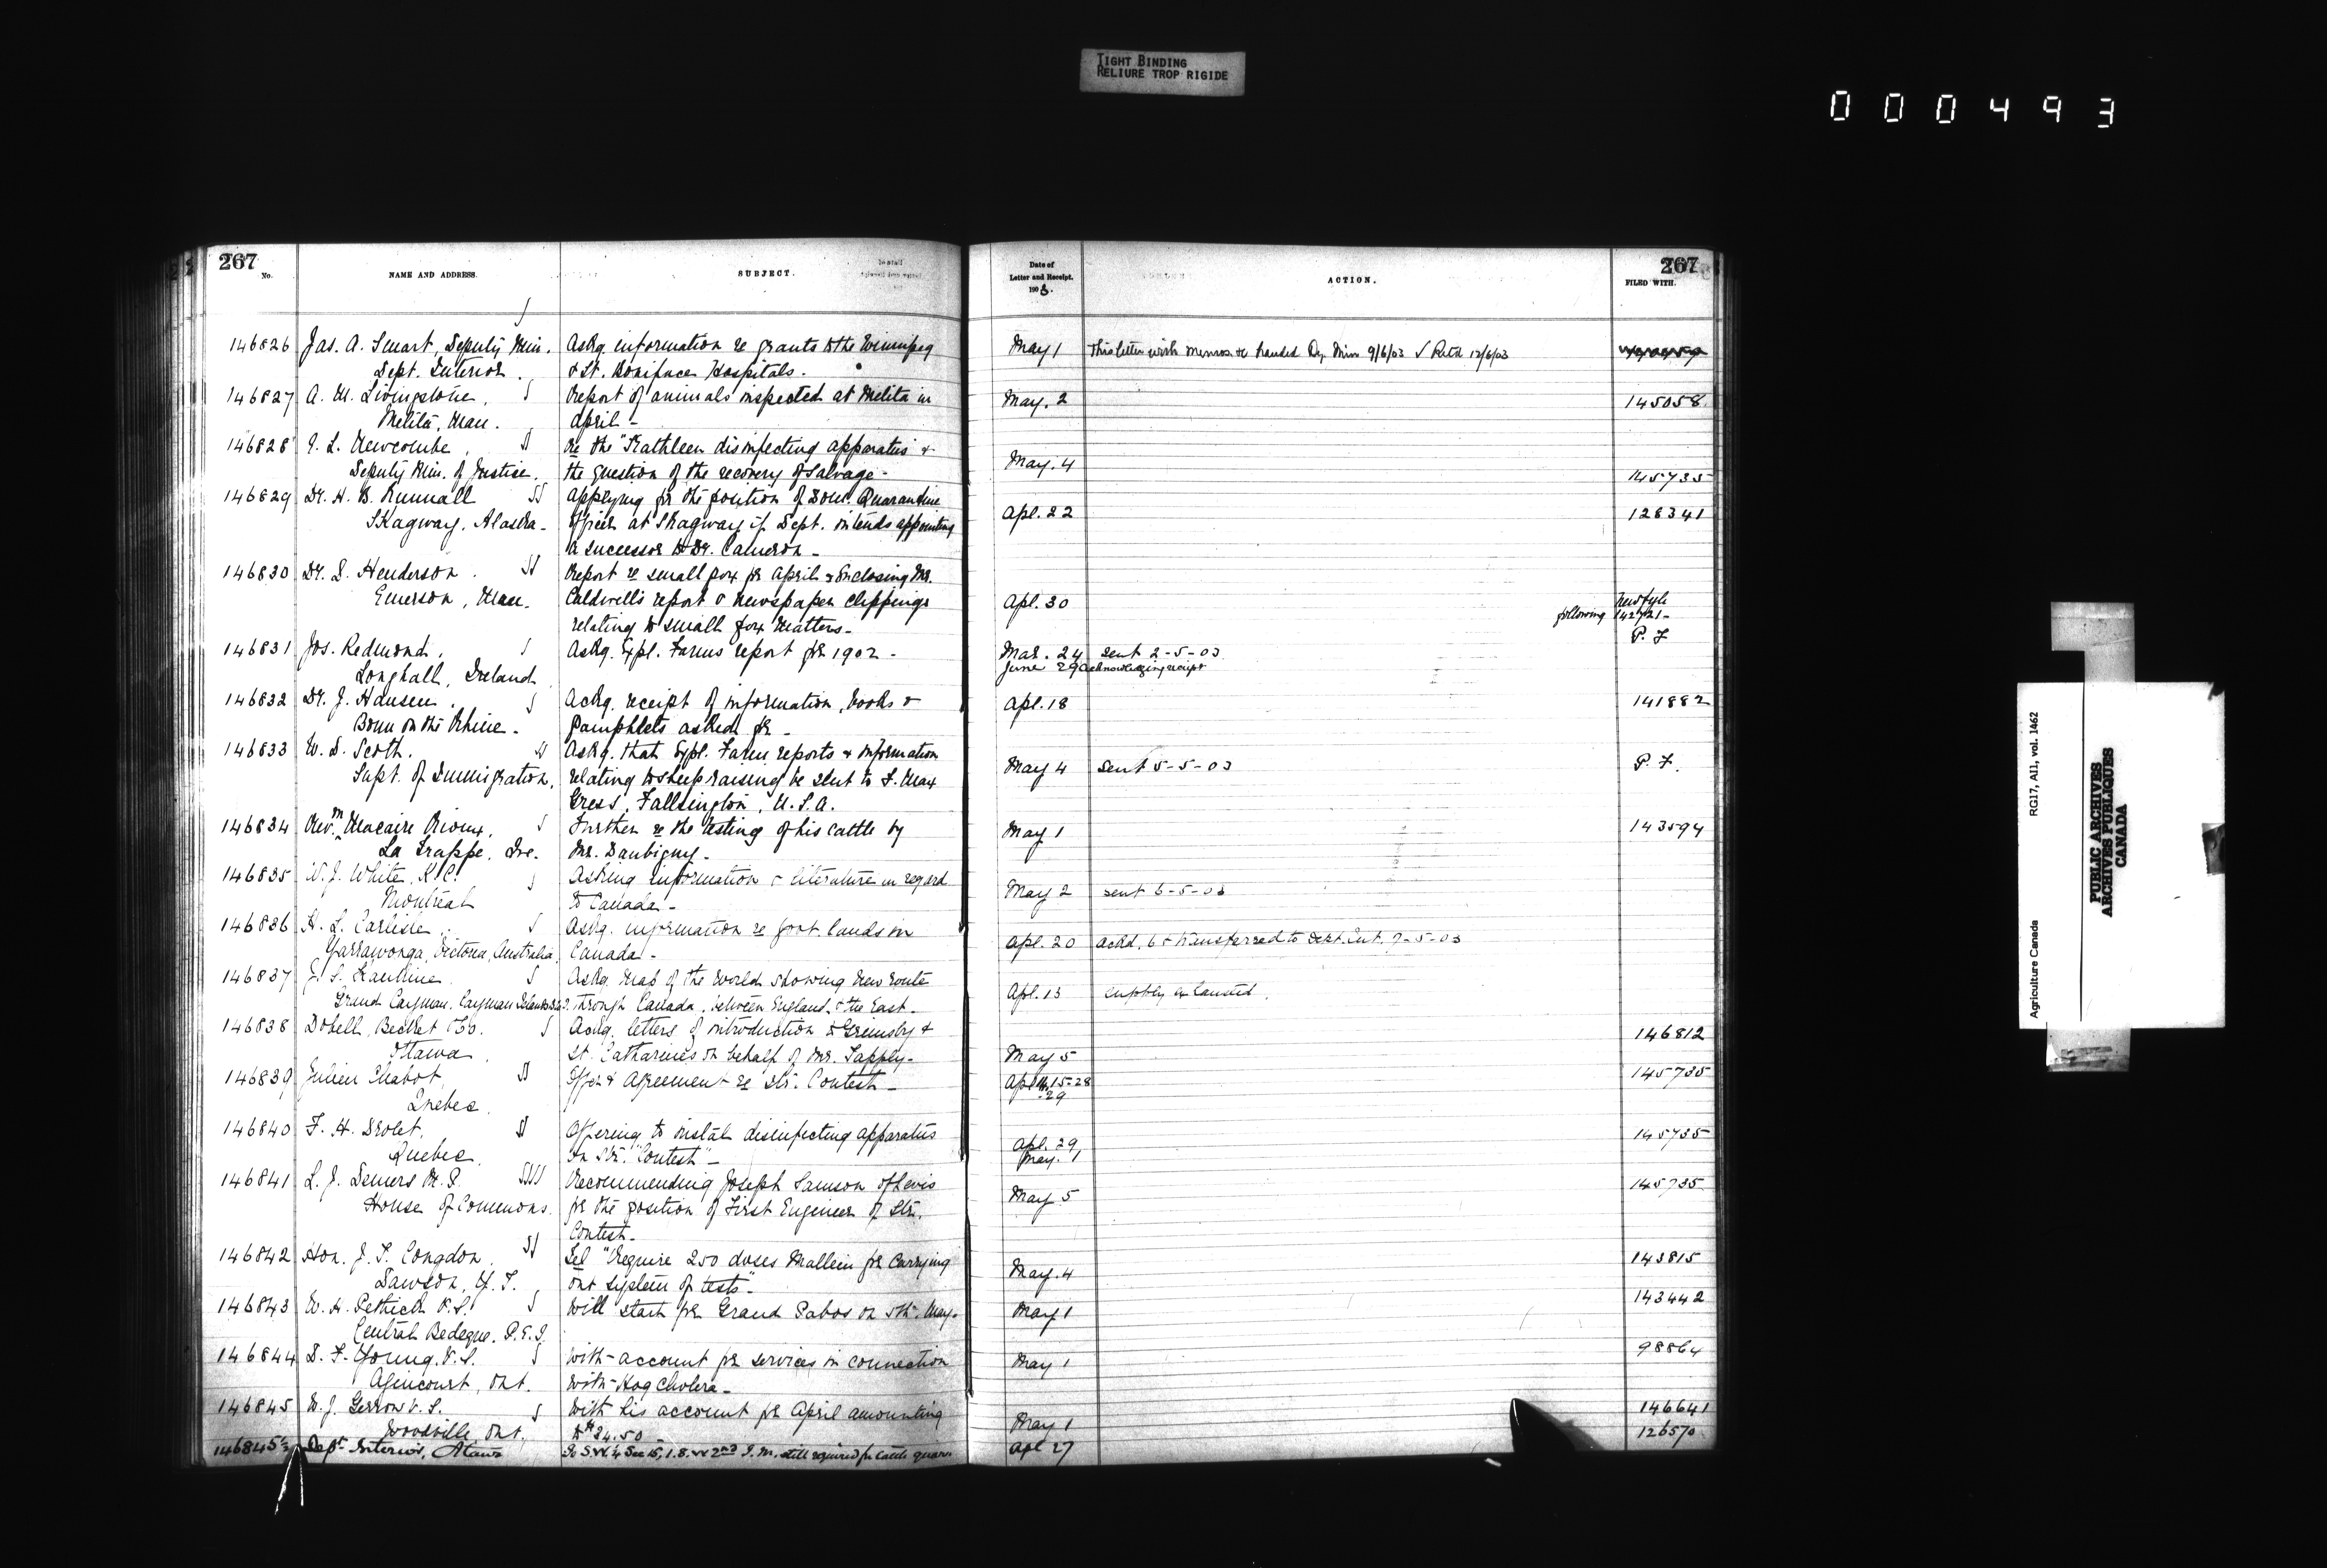 TIGHT BINDING
RELIURE TROP RIGIDE
000493
267
No.
NAME AND ADDRESS.
SUBJECT.
Date of
Letter and Receipt.
1903.
ACTION.
267
FILED WITH.
146826 Jas. A. Smart, Deputy Min. Askg. information re grants to the Winnipeg May 1 This letter with memos &c handed Dy. Min 9/6/03 √ Retd 12/6/03
Dept. Interior. & St. Boniface Hospitals.
146827 A. M. Livingstone, Report of animals inspected at Melita in May. 2 145058
Melita, Man. April -
146828 E. L. Newcombe, Re the "Kathleen disinfecting apparatus & May. 4
Deputy Min. of Justice. the question of the recovery of salvage - 145735
146829 Dr. H. B. Runnall Applying for the position of Dom. Quarantine Apl. 22 128341
Skagway, Alaska - Officer at Skagway if Dept. intends appointing
a successor to Dr. Cameron -
146830 Dr. D. Henderson. Report re small pox for April & Enclosing Mr.
Emerson, Man. Caldwell's report & newspaper clippings Apl. 30 New file
relating to small pox matters - following 142721 -
146831 Jos. Redmond. Askg. Expl. Farms report for 1902 - Mar. 24 sent 2-5-03 P. F
Longhall, Ireland June 29 acknowledging receipt
146832 Dr. J. Hansen. Ackg. receipt of information, books & Apl. 18 141882
Bonn on the Rhine - Pamphlets asked for -
146833 W. D. Scott. Askg. that Expl. Farm reports & information May 4 Sent 5-5-03 P. F.
Supt. of Immigration, relating to sheep raising be sent to F. Max
Gress, Fallsington, U.S.A.
146834 Rev. Macaire Rioux, Further re the testing of his cattle by May 1 143594
La Trappe, Que. Mr. Daubigny -
146835 W. J. White, K.C. Asking information & literature in regard May 2 sent 6-5-03
Montreal to Canada -
146836 H. L. Carlisle Askg. information re govt. lands in Apl. 20 ackd. 6 & transferred to Dept. Int. 7-5-03
Yarrawonga, Victoria, Australia, Canada -
146837 Askg. map of the world showing new route Apl. 13 supply exhausted.
Grand Cayman. Cayman Islands through Canada, between England & the East -
146838 Dobell, Becket & Co. Ackg. letters of introduction to Grimsby & 146812
Ottawa St. Catharines on behalf of Mr. Tapply - May 5
146839 Julien Chabot, Offer & Agreement re Str. Contest - 15-28 145735
Quebec. 29
146840 F. H. Drolet, Offering to instal disinfecting apparatus Apl. 29, 145735
Quebec on Str. "Contest" - May. 1
146841 L. J. Demers M.P. Recommending Joseph Samson of Levis May 5 145735
House of Commons. for the position of First Engineer of Str.
Contest -
146842 Hon. J. T. Congdon, Tel "Require 250 doses Mallein for carrying May. 4 143815
Dawson, Y. T. out system of tests" -
146843 W. H. Pethick V.S. Will start for Grand Pabos on 5th. May. May 1 143442
Central Bedeque. P.E.I.
146844 D. F. Young. V.S. With account for services in connection May 1 98864
Agincourt, Ont. with Hog Cholera -
146845 W. J. Gerrow V.S. With his account for April amounting May 1 146641
Woodville, Ont. to $24.50 -
146845½ Dept Interior, Ottawa Is S.W. ¼ Sec 15, 1. 8. W 2nd I. M. still required for cattle quarn Apl 27 126570
Agriculture Canada RG17, A11, vol. 1462
PUBLIC ARCHIVES
ARCHIVES PUBLIQUES
CANADA